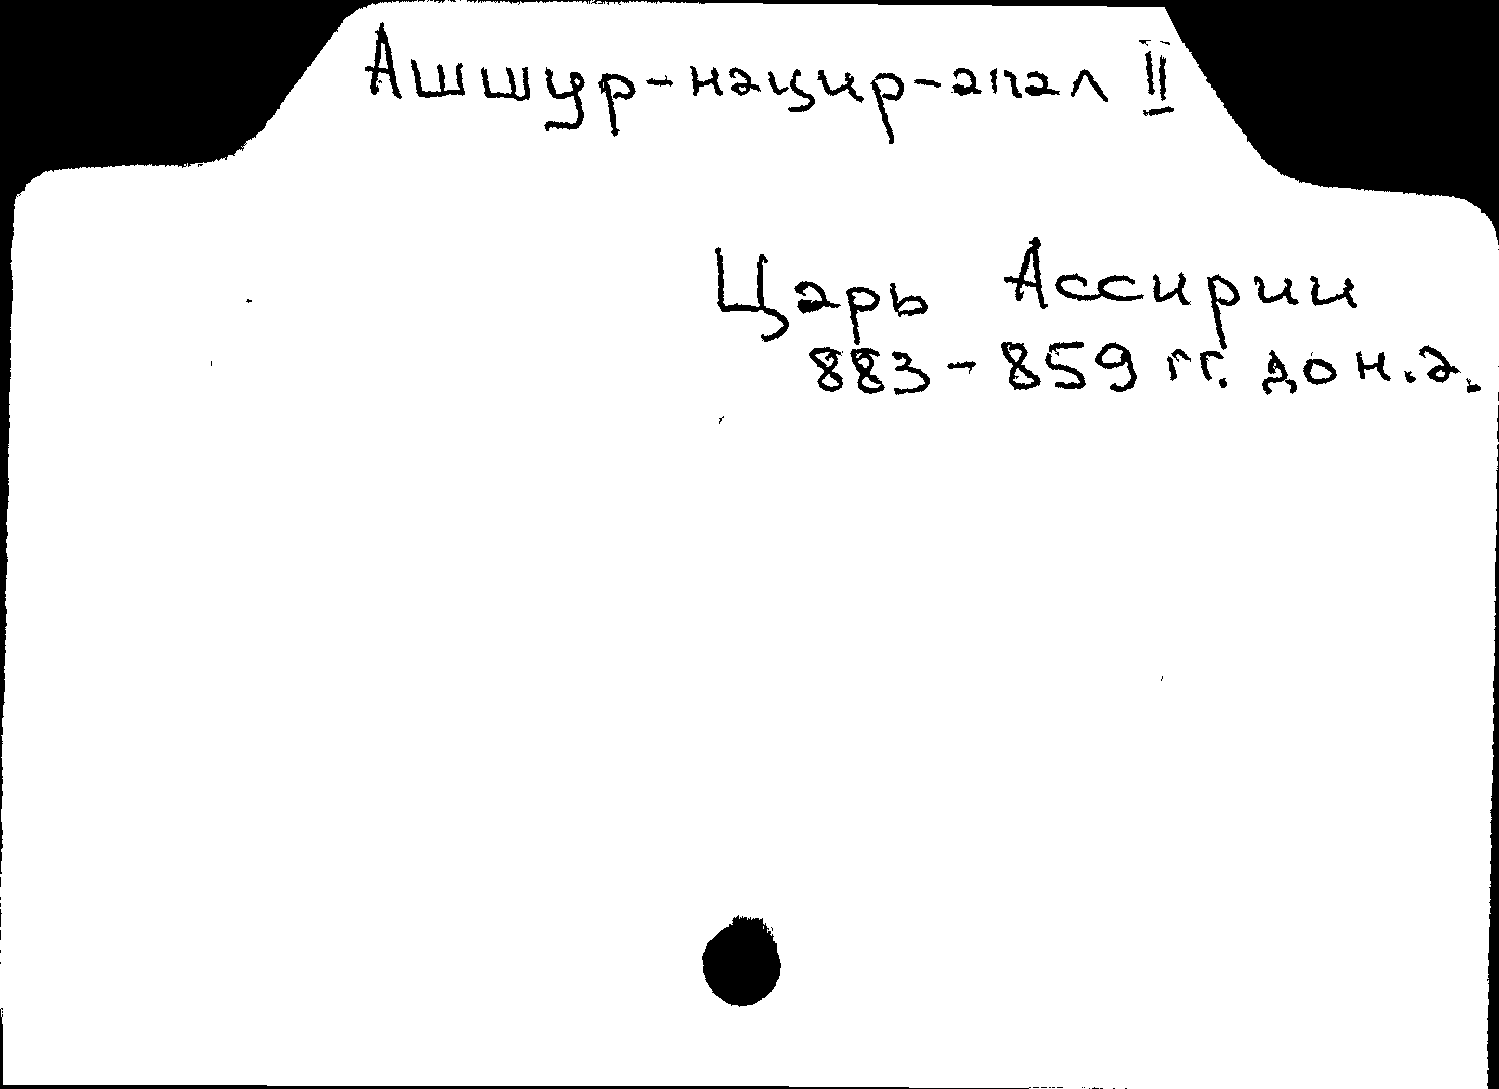 Ашшур-нацир-апал II
Царь Ассирии
883-859 гг. до н.э.